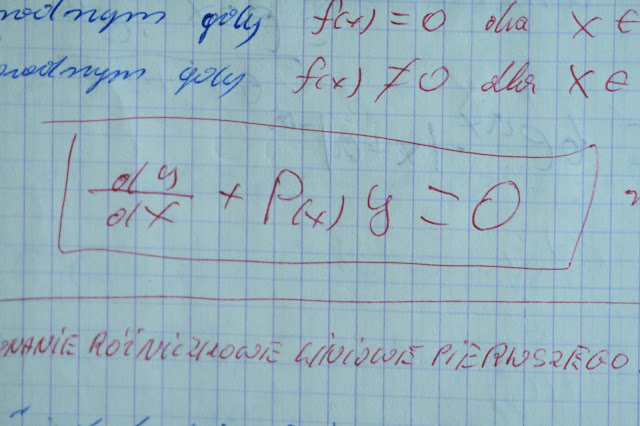 rodnym gdy f(x) = 0 dla x ∈
rodnym gdy f(x) ≠ 0 dla x ∈
dy/dx + P(x) y = 0
WNANIE RÓŻNICZKOWE LINIOWE PIERWSZEGO